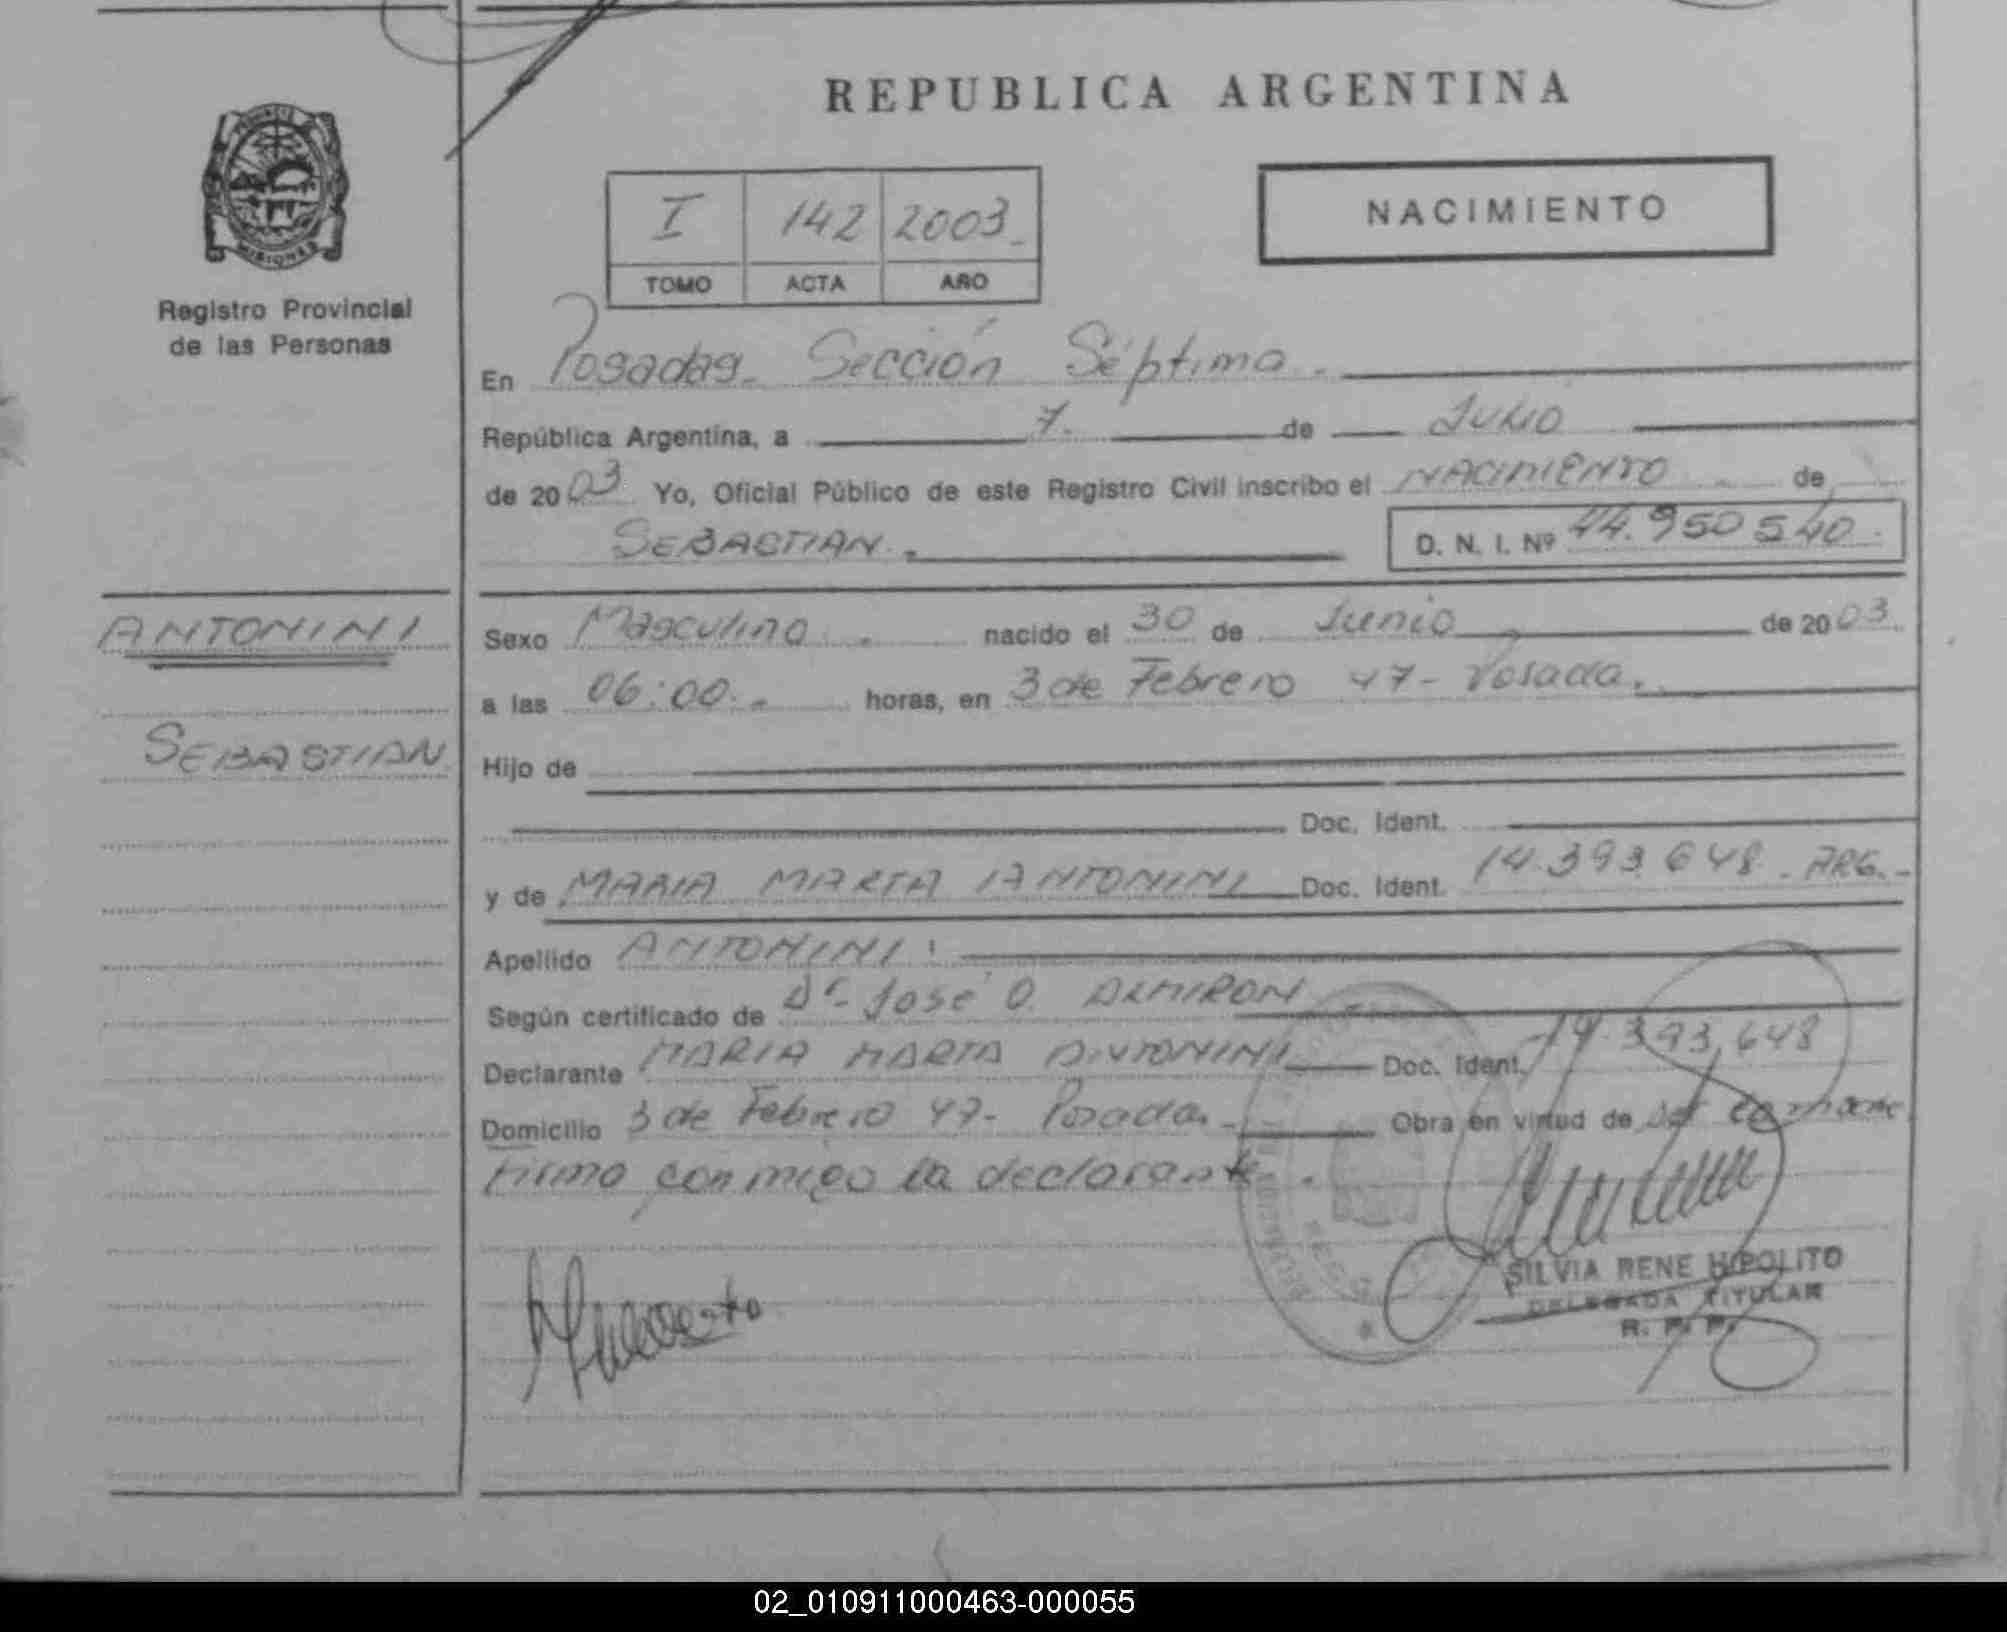 REPUBLICA ARGENTINA
PROVINCIA DE
MISIONES
Registro Provincial
de las Personas
I 142 2003
TOMO ACTA AÑO
NACIMIENTO
En Posadas Sección Séptima.
República Argentina, a 7. de Julio
de 2003 Yo, Oficial Público de este Registro Civil inscribo el NACIMIENTO de
SEBASTIAN. D. N. I. Nº 44.950540.
ANTONINI
SEBASTIAN
Sexo Masculino. nacido el 30 de Junio de 2003.
a las 06:00. horas, en 3 de Febrero 47- Posada.
Hijo de
Doc. Ident.
y de MARIA MARTA ANTONINI Doc. Ident. 14.393.648 - ARG.-
Apellido ANTONINI
Según certificado de Dr. José O. ALMIRON
Declarante MARIA MARTA ANTONINI Doc. Ident. 14.393.648
Domicilio 3 de Febrero 47- Posada. Obra en virtud de
firma conmigo la declarante.
SILVIA RENE HIPOLITO
DELEGADA TITULAR
R. P. P.
02_010911000463-000055